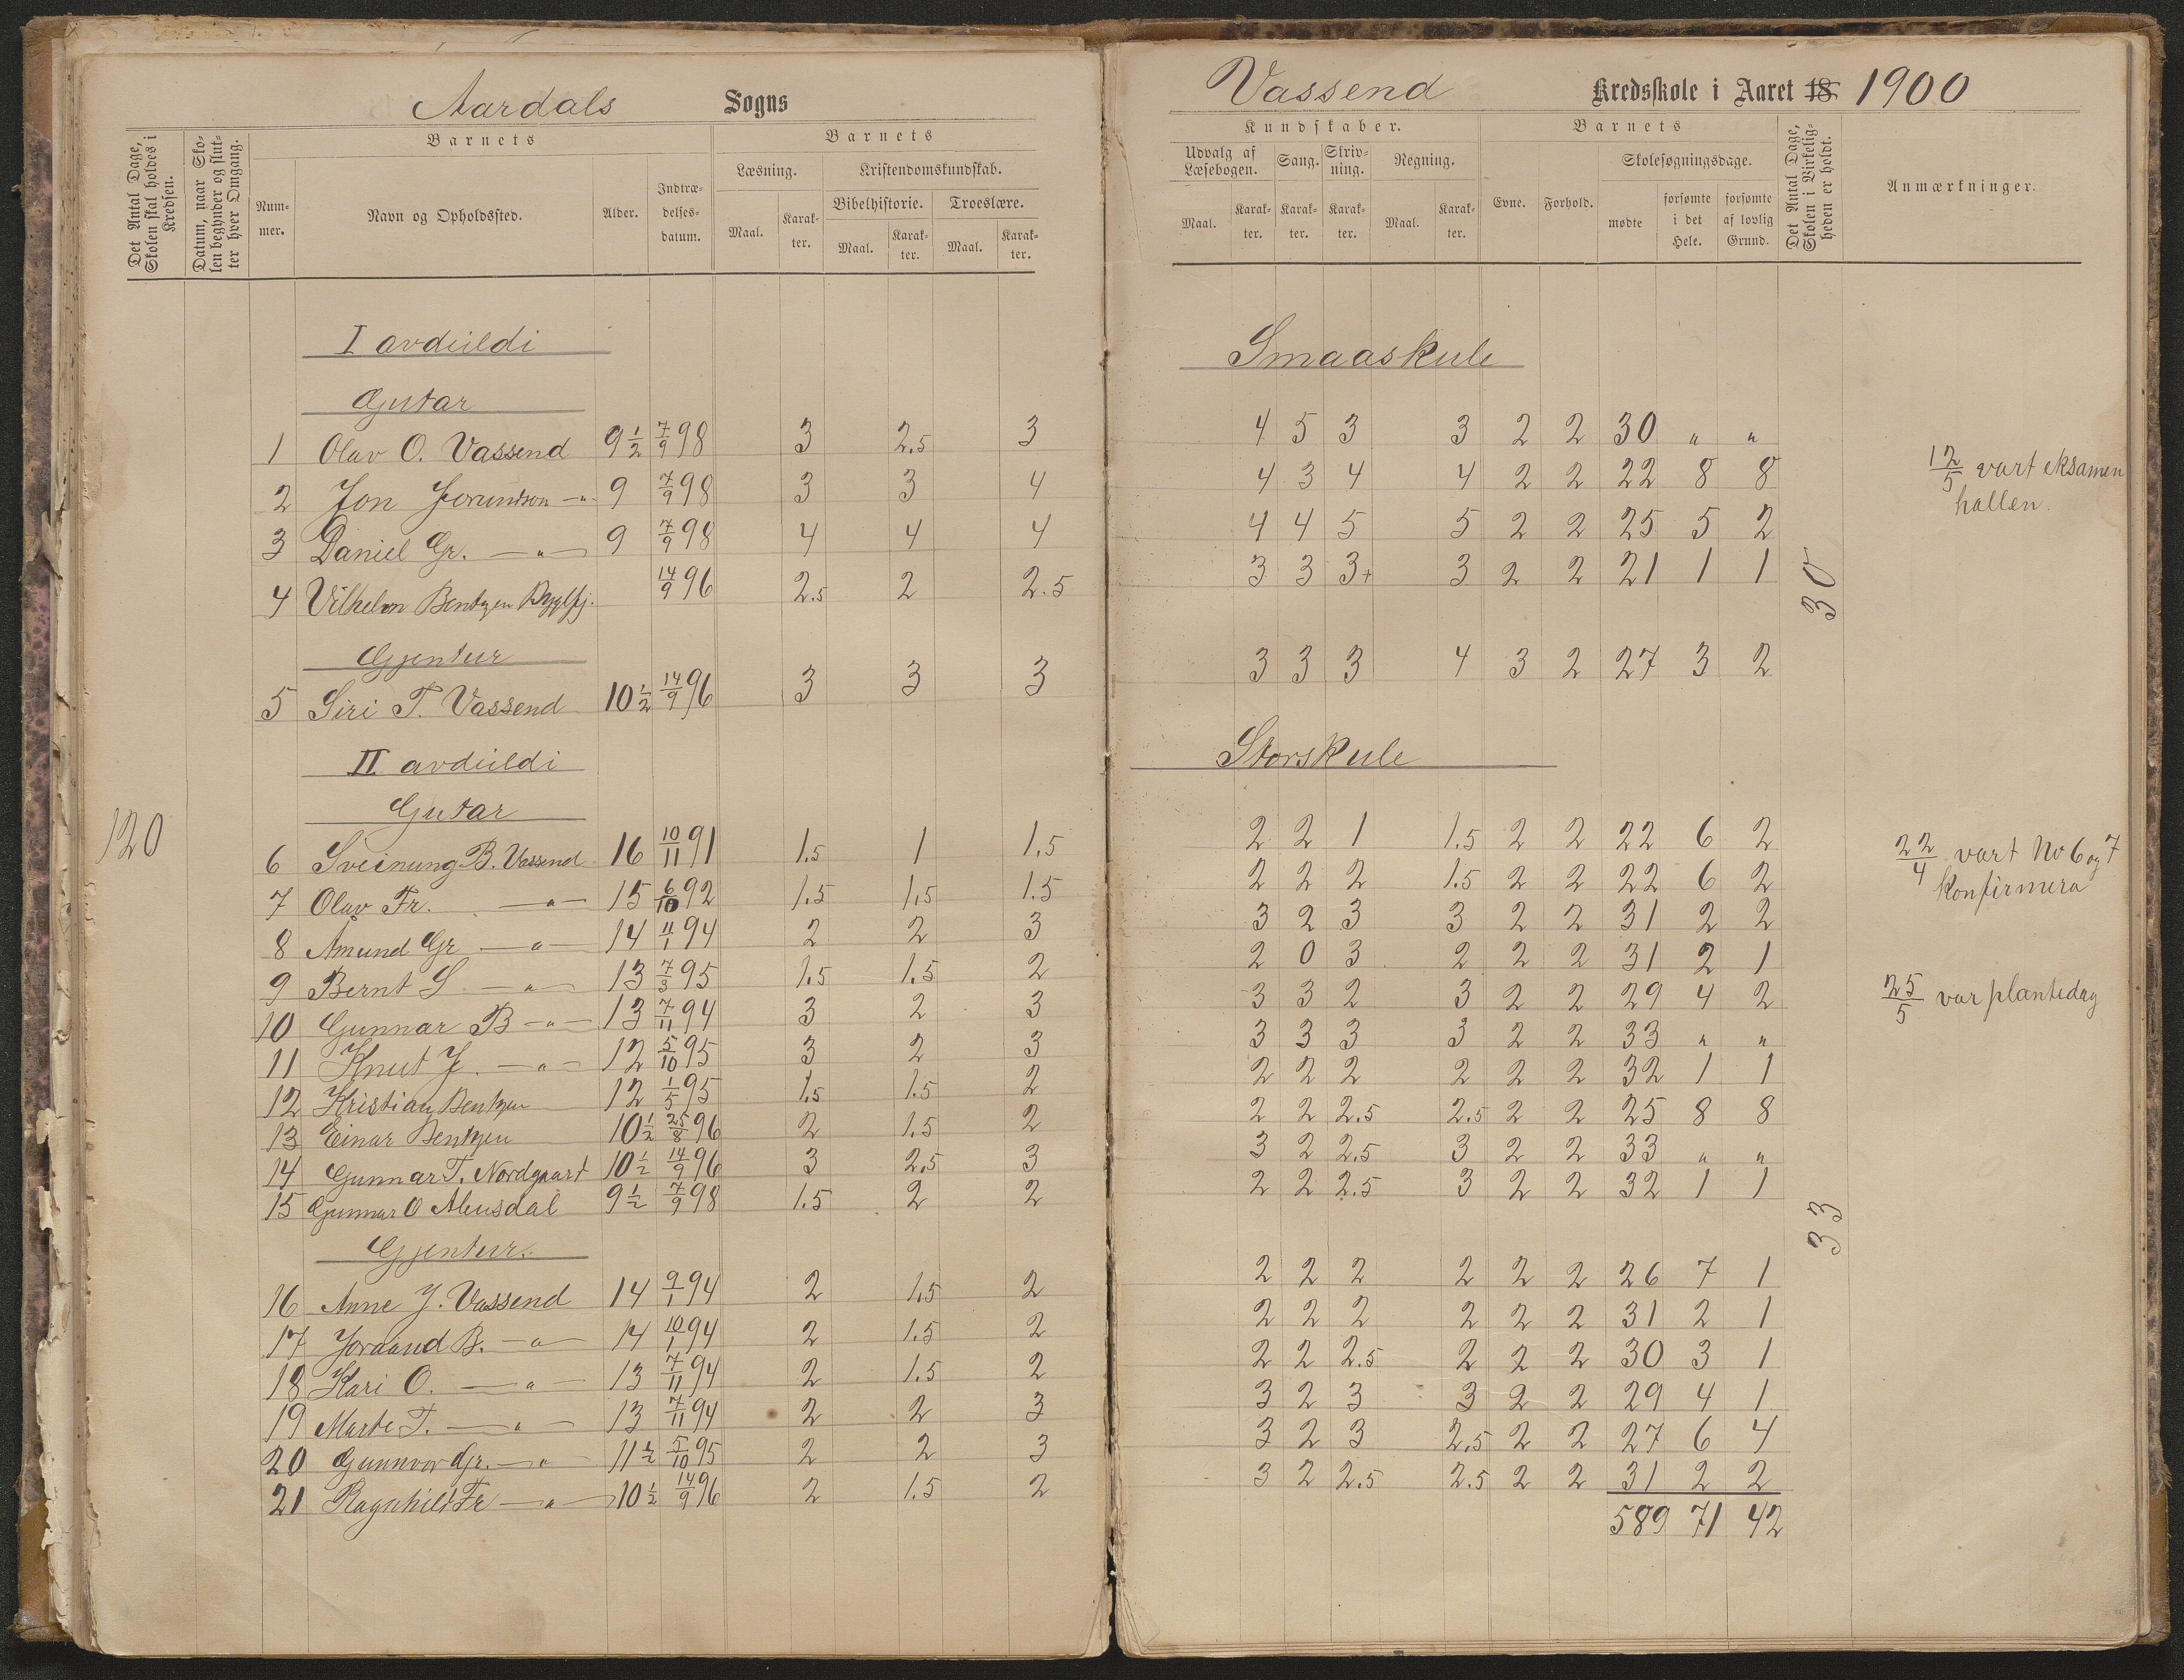 Aardals Sogns
Det Antal Dage, Skolen skal holdes i Kredsen.
Datum, naar Skolen begynder og slutter hver Omgang.
Barnets
Nummer.
Navn og Opholdssted.
Alder.
Indtrædelsesdatum.
Barnets
Læsning.
Kristendomskundskab.
Bibelhistorie.
Troeslære.
Maal. Karakter. Maal. Karakter. Maal. Karakter.
I avdeildi
Gutar
1 Olav O. Vassend 9½ 7/9 98 3 2.5 3
2 Jon Jorundson -"- 9 7/9 98 3 3 4
3 Daniel Gr. -"- 9 7/9 98 4 4 4
4 Vilhelm Bentzen 14/9 96 2.5 2 2.5
Gjentur
5 Siri T. Vassend 10½ 14/9 96 3 3 3
II avdeildi
Gutar
120
6 Sveinung B. Vassend 16 10/11 91 1.5 1 1.5
7 Olav Fr. -"- 15 6/10 92 1.5 1.5 1.5
8 Amund Gr -"- 14 11/1 94 2 2 3
9 Bernt S -"- 13 7/3 95 1.5 1.5 2
10 Gunnar B -"- 13 7/11 94 3 2 3
11 Knut J. -"- 12 5/10 95 3 2 3
12 Kristian Bentzen 12 1/5 95 1.5 1.5 2
13 Einar Bentzen 10½ 25/8 96 2 1.5 2
14 Gunnar T. Nordgaard 10½ 14/9 96 3 2.5 3
15 Gunnar O 9½ 7/9 98 1.5 2 2
Gjentur.
16 Anne J. Vassend 14 9/1 94 2 1.5 2
17 Joraand B. -"- 14 10/1 94 2 1.5 2
18 Kari O. -"- 13 7/11 94 2 1.5 2
19 Marte T. -"- 13 7/11 94 2 2 3
20 Gunnvor Gr. -"- 11½ 5/10 95 2 2 3
21 Ragnhild Fr -"- 10½ 14/9 96 2 1.5 2
Vassend Kredsskole i Aaret 18 1900
Kundskaber.
Udvalg af Læsebogen.
Sang.
Skrivning.
Regning.
Maal. Karakter. Karakter. Karakter. Maal. Karakter.
Barnets
Evne.
Forhold.
Skolesøgningsdage.
mødte
forsømte i det Hele.
forsømte af lovlig Grund.
Det Antal Dage, Skolen i Virkeligheden er holdt.
Anmærkninger.
Smaaskule
4 5 3 3 2 2 30 " "
4 3 4 4 2 2 22 8 8
4 4 5 5 2 2 25 5 2
3 3 3+ 3 2 2 21 1 1
30
3 3 3 4 3 2 27 3 2
12/5 vart eksamen
hallen.
Storskule
2 2 1 1.5 2 2 22 6 2
2 2 2 1.5 2 2 22 6 2
3 2 3 3 2 2 31 2 2
2 0 3 2 2 2 31 2 1
3 3 2 3 2 2 29 4 2
3 3 3 3 2 2 33 " "
2 2 2 2 2 2 32 1 1
2 2 2.5 2.5 2 2 25 8 8
3 2 2.5 3 2 2 33 " "
2 2 2.5 3 2 2 32 1 1
33
22/4 vart No 6 og 7
Konfirmera
25/5 var plantedag
2 2 2 2 2 2 26 7 1
2 2 2 2 2 2 31 2 1
2 2 2.5 2 2 2 30 3 1
3 2 3 3 2 2 29 4 1
3 2 3 2.5 2 2 27 6 4
3 2 2.5 2.5 2 2 31 2 2
589 71 42